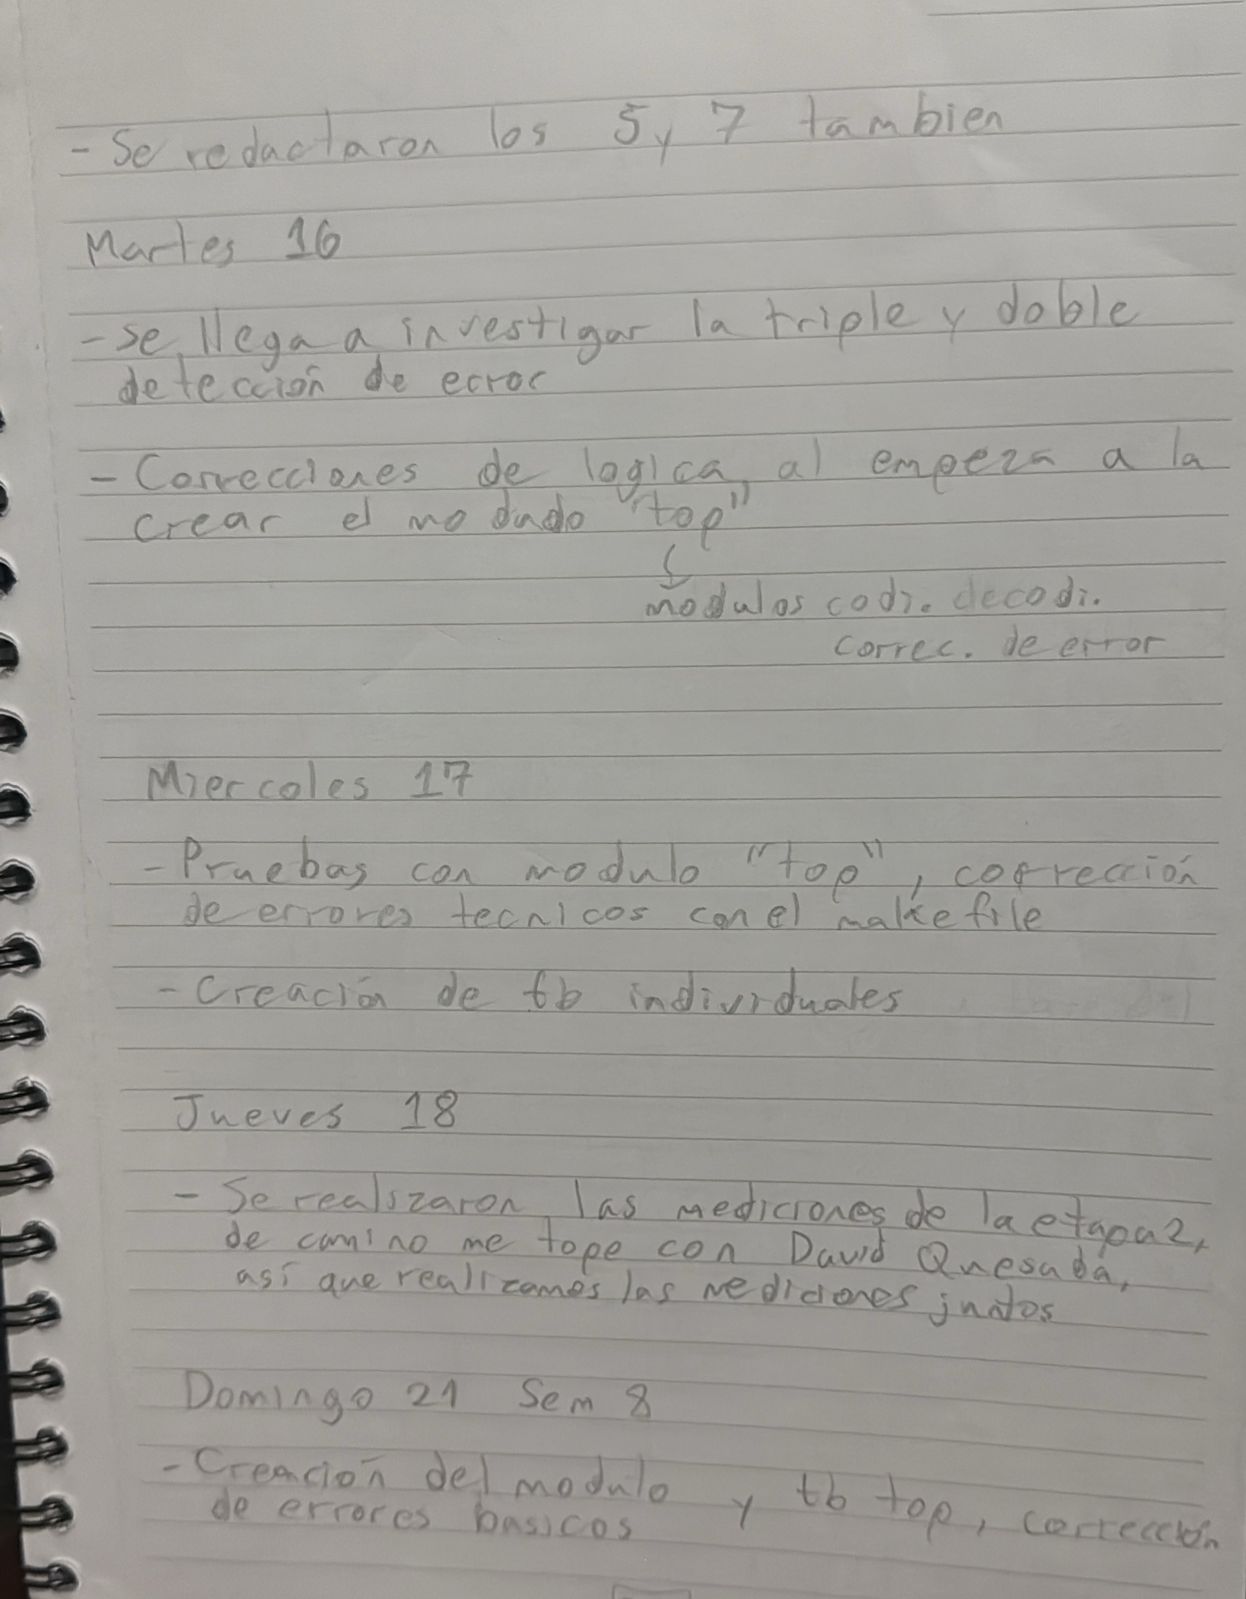 - Se redactaron los 5 y 7 tambien
Martes 16
- se llega a investigar la triple y doble
detección de error
- Correcciones de logica, al empeza a la
crear el modudo "top"
modulos codi. decodi.
correc. de error
Miercoles 17
- Pruebas con modulo "top", corrección
de errores tecnicos con el makefile
- Creación de tb individuales
Jueves 18
- Se realizaron las mediciones de la etapa 2,
de camino me tope con David Quesada,
así que realizamos las mediciones juntos
Domingo 21 Sem 8
- Creación del modulo y tb top, corrección
de errores basicos